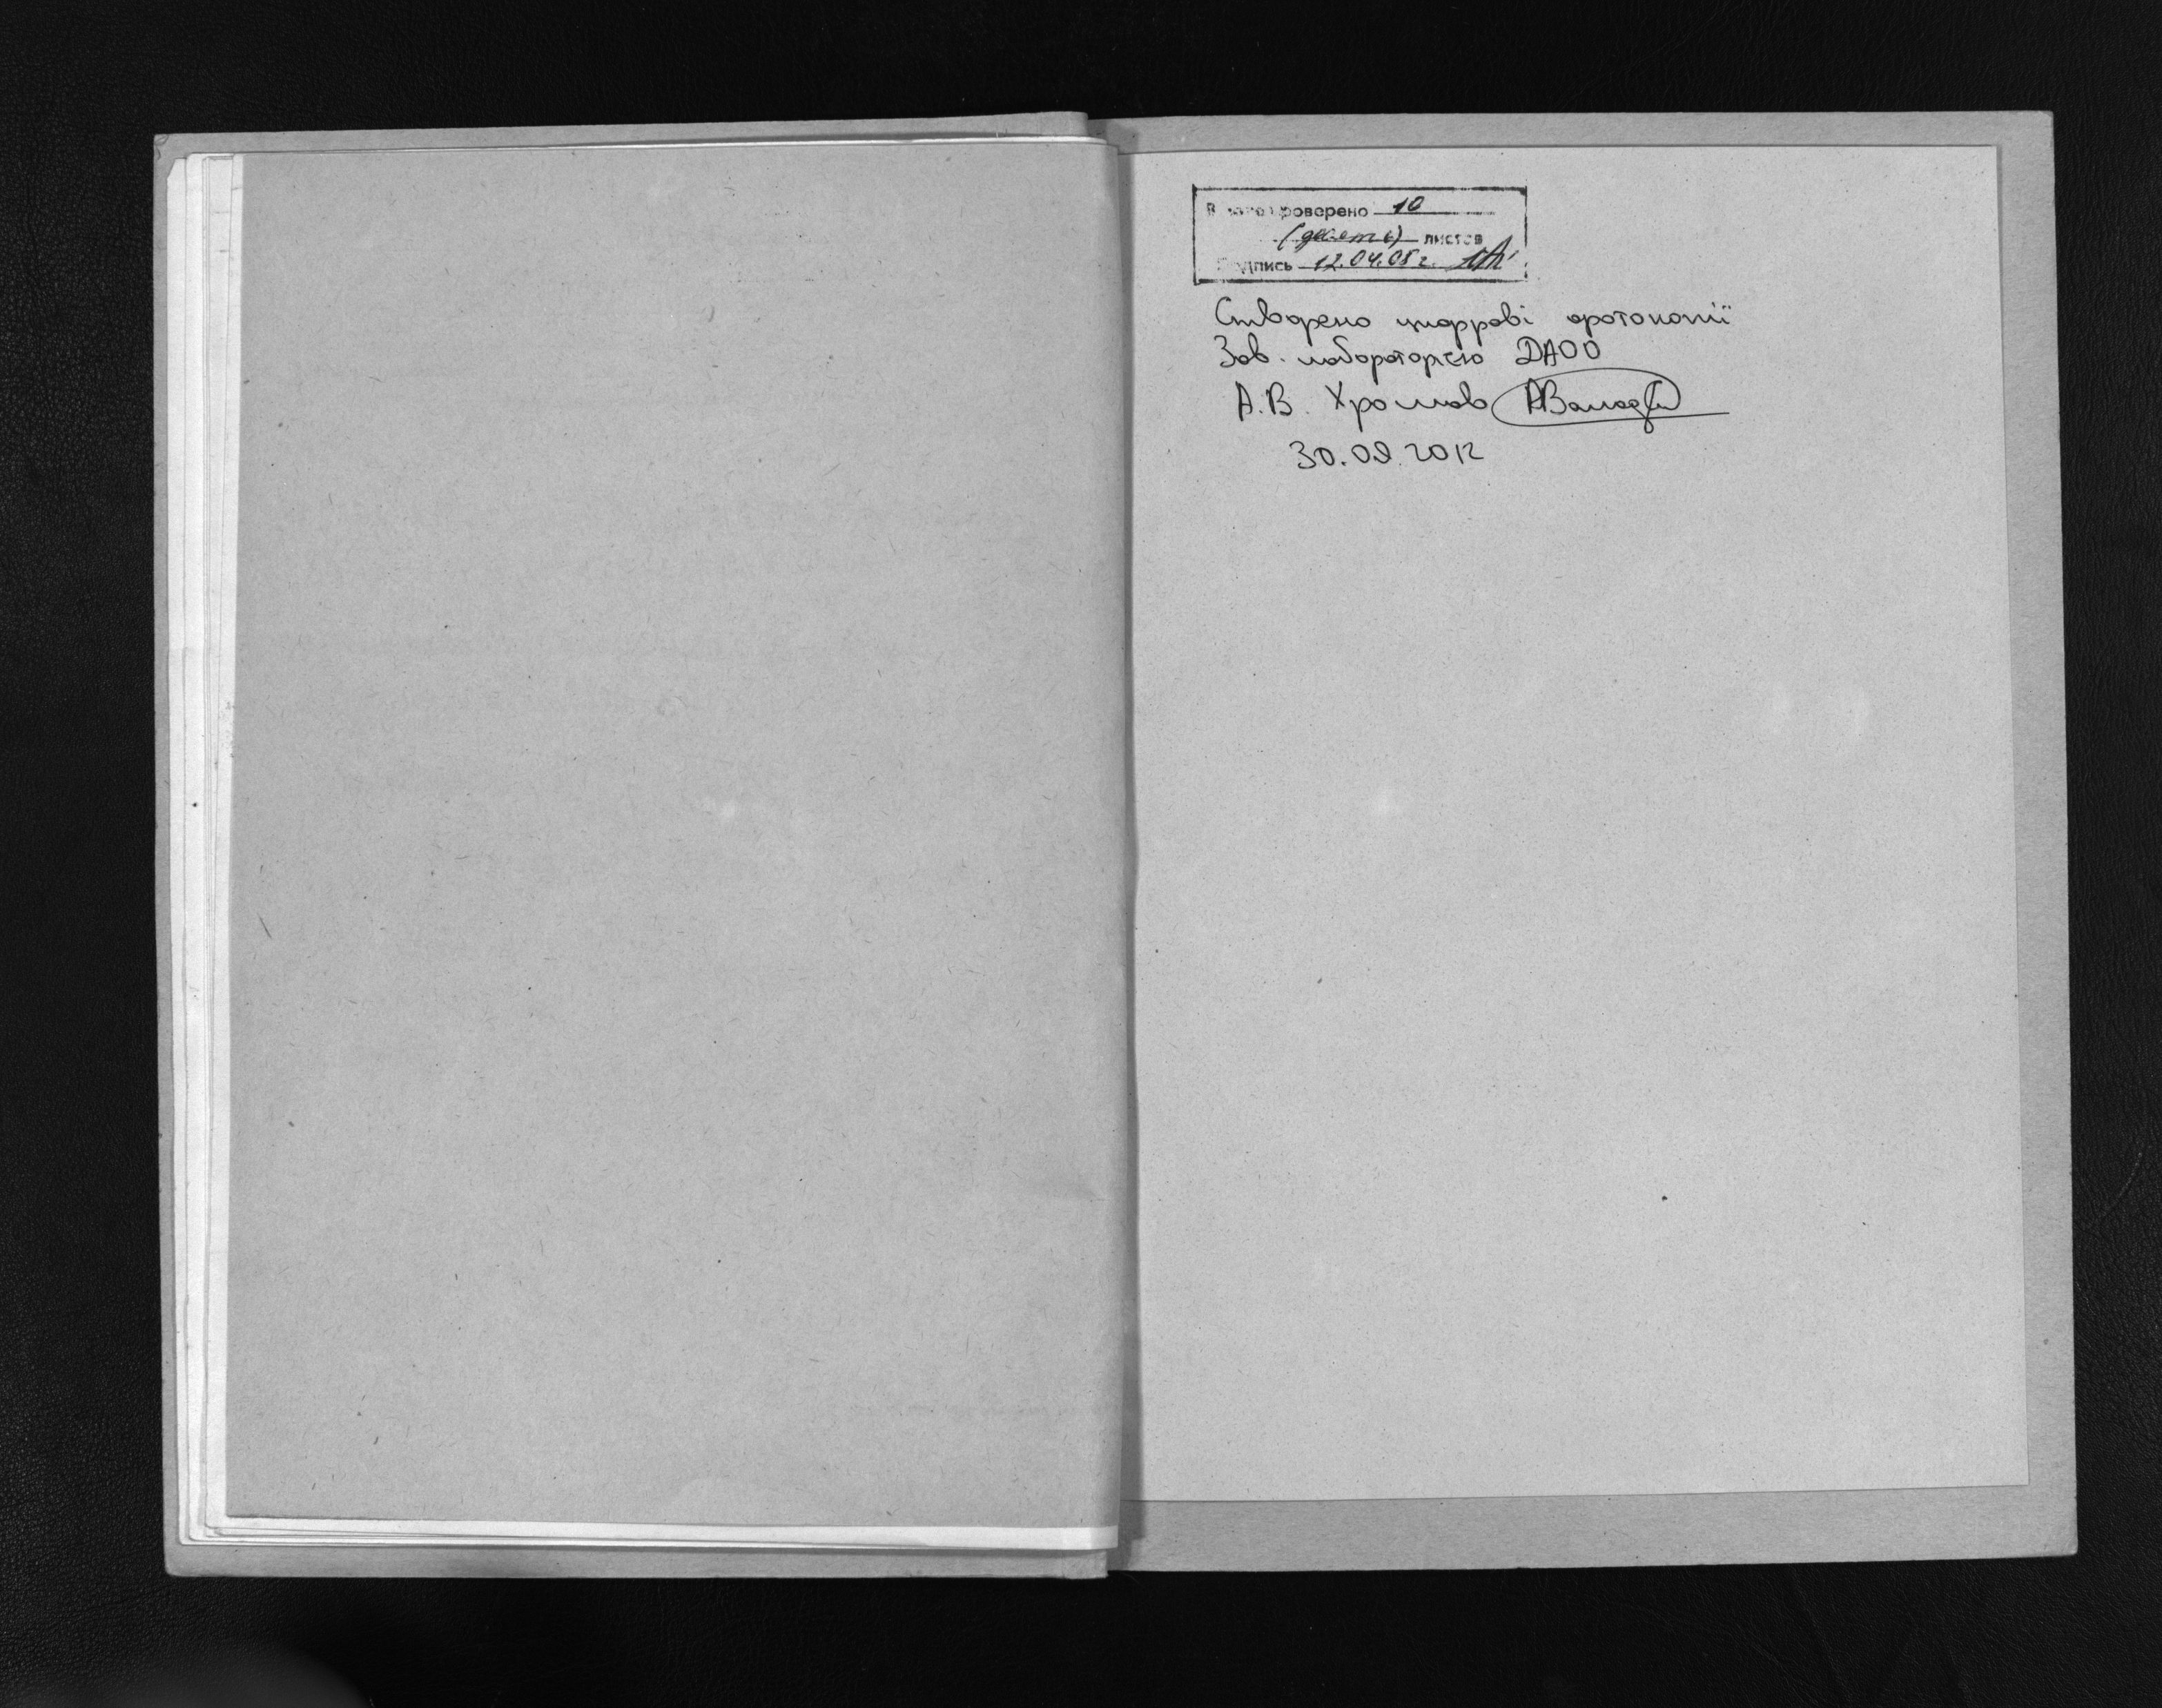 В деле проверено 10
(десять) листов
Подпись 12.04.08 г.
Створено цифрові фотокопії
Зав. лабораторією ДАОО
А.В. Хромов
30.09.2012